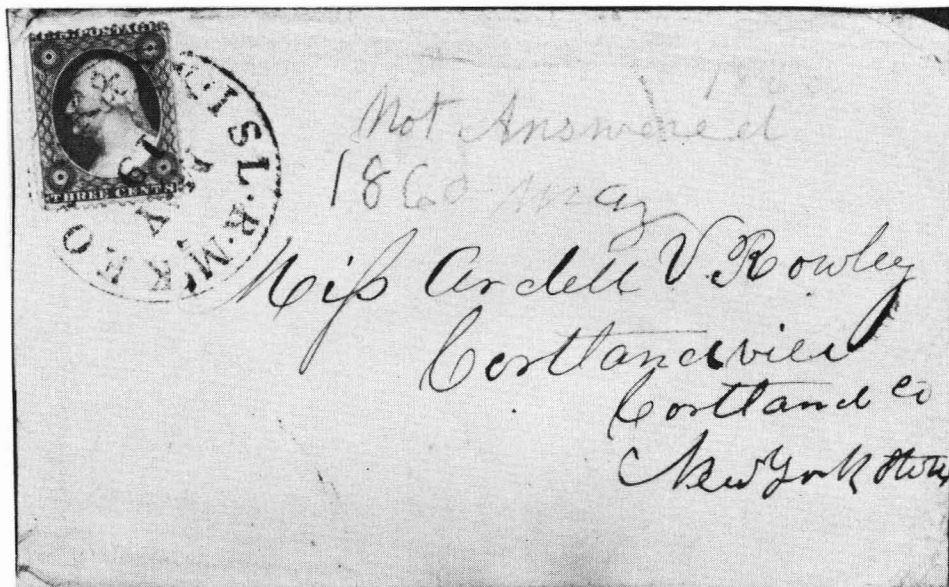 THREE CENTS
Not Answered
1860 May
Miſs Ardell V. Rowley
Cortlandvill
Cortland Co
New York State